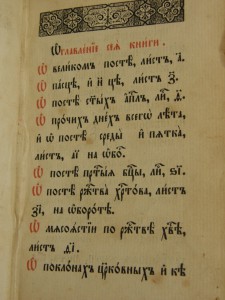 Ѡглавле́нїе сея̀ книги .
Ѡ великомъ постѣ̀, ли́стъ, а҃.
Ѡ па́сцѣ, и҆ н҃ цѣ, ли́стъ з҃.
Ѡ постѣ̀ ст҃ы́хъ а҆пⷭ҇лъ, лиⷭ҇, д҃.
Ѡ про́чихъ дне́хъ всегѡ̀ лѣ́та,
и҆ ѡ҆ постѣ̀ среды̀ и҆ пѧтка̀,
ли́стъ, а҃і на ѡ҆боⷬ҇.
Ѡ постѣ̀ пртⷭ҇ы́ѧ бц҃ы, лиⷭ҇, в҃і.
Ѡ постѣ̀ ржⷭ҇тва̀ хрⷭ҇то́ва, ли́стъ
з҃і, на ѡ҆боро́тѣ.
Ѡ мѧсоѧ́стїи по ржⷭ҇твѣ̀ хвⷭ҇ѣ,
ли́стъ д҃і.
Ѡ покло́нахъ цр҃ко́вныхъ и҆ ке